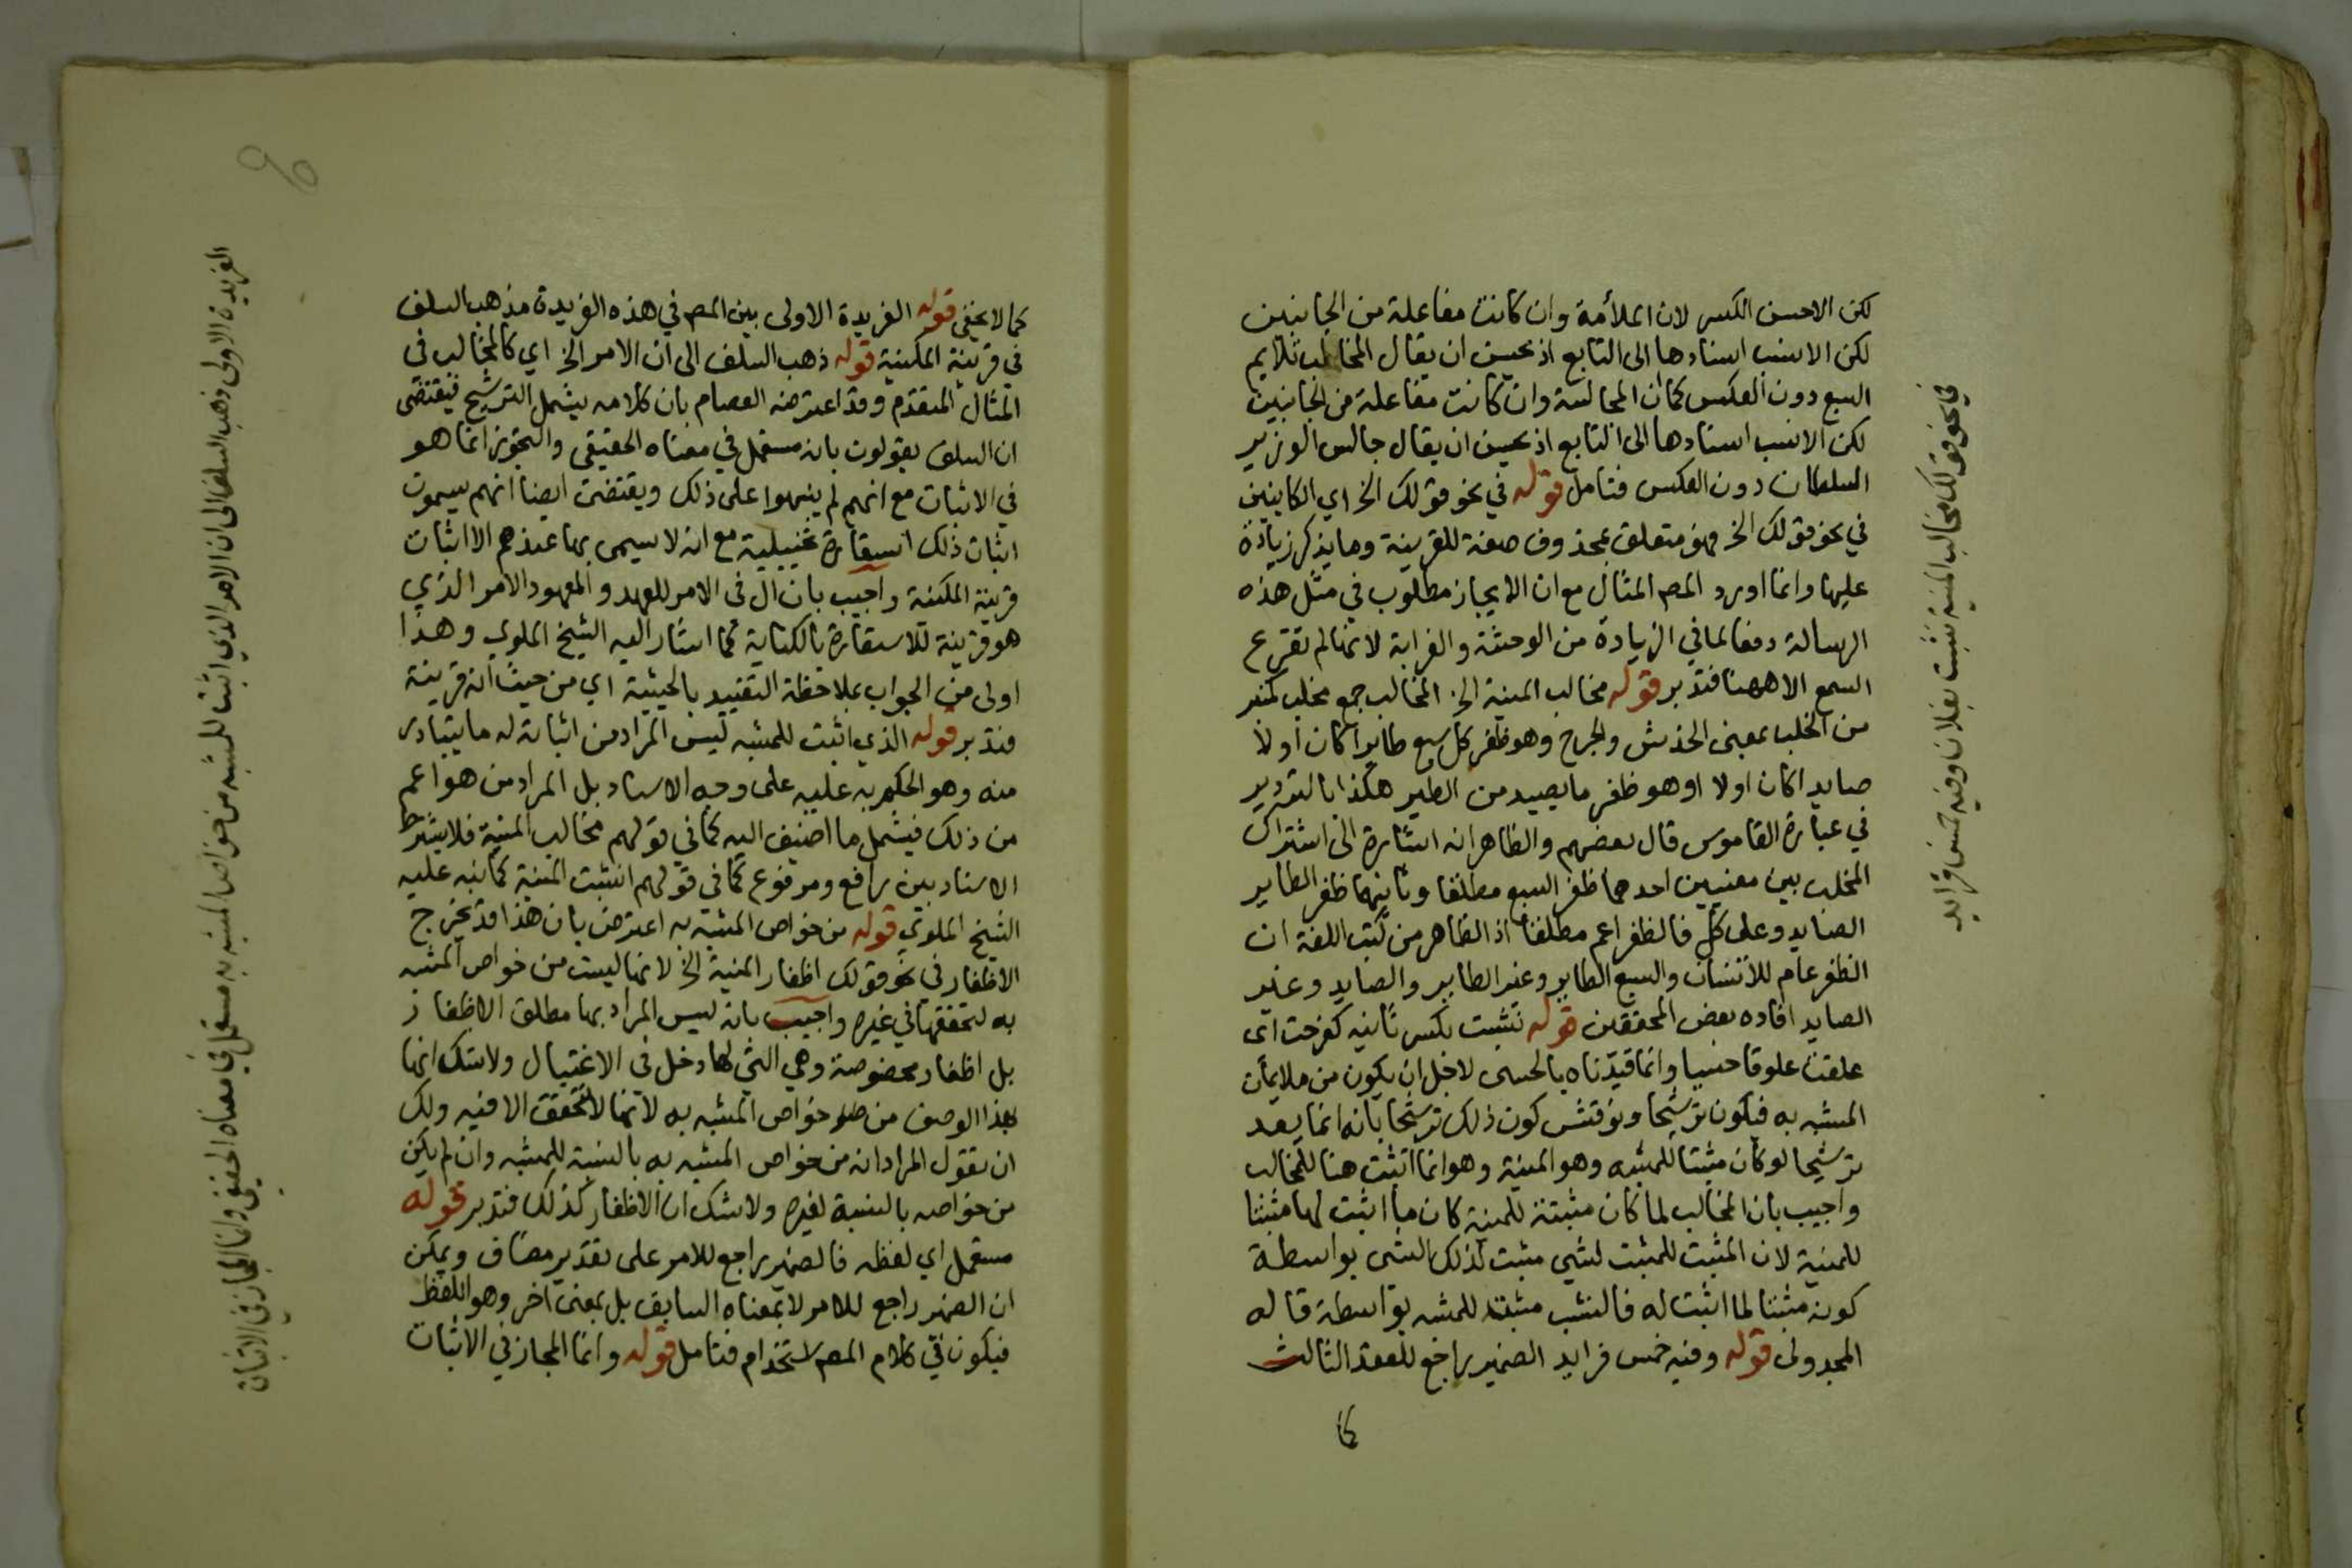 لكن الاحسن الكسر لان الملأمة وان كانت مفاعلة من الجانبين
لكن الانسب اسنادها الى التابع اذ يحسن ان يقال المخالب تلايم
السبع دون العكس كما ان المجالسة وان كانت مفاعلة من الجانبين
لكن الانسب اسنادها الى التابع اذ يحسن ان يقال جالس الوزير
السلطان دون العكس فتامل قوله في نحو قولك الخ اي الكاينين
في نحو قولك الخ فهو متعلق بمحذوف صفة للقرينة وما يذكر زيادة
عليها وانما اورد المصـ المثال مع ان الايجاز مطلوب في مثل هذه
الرسالة دفعا لما في الزيادة من الوحشة والغرابة لانها لم تقرع
السمع الا ههنا فتدبر قوله مخالب المنية الخ المخالب جمع مخلب كمنبر
من الخلب بمعنى الخدش والجرح وهو ظفر كل سبع طايرا كان اولا
صايدا كان اولا او هو ظفر ما يصيد من الطير هكذا بالترديد
في عبارة القاموس قال بعضهم والظاهر انه اشارة الى اشتراك
المخلب بين معنيين احدهما ظفر السبع مطلقا وثانيهما ظفر الطاير
الصايد وعلى كل فالظفر اعم مطلقا اذ الظاهر من كتب اللغة ان
الظفر عام للانسان والسبع الطاير وغير الطاير والصايد وغير
الصايد افاده بعض المحققين قوله نشبت بكسر ثانيه كفرحت اى
علقت علوقا حسيا وانما قيدناه بالحسى لاجل ان يكون من ملايمات
المشبه به فيكون ترشيحا ونوقش كون ذلك ترشيحا بانه انما يعد
ترشيحا لو كان مثبتا للمشبه وهو المنية وهو انما اثبت هنا للمخالب
واجيب بان المخالب لما كان مثبتة للمنية كان ما اثبت لها مثبتا
للمنية لان المثبت للمثبت لشي مثبت لذلك الشى بواسطة
كونه مثبتا لما اثبت له فالنشب مثبته للمشبه بواسطة قاله
المجدولى قوله وفيه خمس فرايد الضمير راجع للعقد الثالث
كما
في نحو قولك مخالب المنية نشبت بفلان وفيه خمس فرايد
كما لا يخفى قوله الفريدة الاولى بين المصـ في هذه الفريدة مذهب السلف
في قرينة المكنية قوله ذهب السلف الى ان الامر الخ اي كالمخالب في
المثال المتقدم وقد اعترضه العصام بان كلامه يشمل الترشيح فيقتضى
ان السلف يقولون بانه مستعمل في معناه الحقيقى والتجوز انما هو
في الاثبات مع انهم لم ينبهوا على ذلك ويقتضى ايضا انهم يسمون
اثبات ذلك استعارة تخييلية مع انه لا يسمى بها عندهم الا اثبات
قرينة المكنية واجيب بان ال فى الامر للعهد والمعهود الامر الذي
هو قرينة للاستعارة بالكناية كما اشار اليه الشيخ الملوي وهذا
اولى من الجواب بملاحظة التقييد بالحيثية اي من حيث انه قرينة
فتدبر قوله الذي اثبت للمشبه ليس المراد من اثباته له ما يتبادر
منه وهو الحكم به عليه على وجه الاسناد بل المراد من هو اعم
من ذلك فيشمل ما اضيف اليه كما في قولهم مخالب المنية فلا يشترط
الاسناد بين رافع ومرفوع كما في قولهم انشبت المنية كما نبه عليه
الشيخ الملوي قوله من خواص المشبه به اعترض بان هذا قد يخرج
الاظفار في نحو قولك اظفار المنية الخ لانها ليست من خواص المشبه
به لتحققها في غيره واجيب بانه ليس المراد بها مطلق الاظفار
بل اظفار مخصوصة وهي التي لها دخل فى الاغتيال ولا شك انها
بهذا الوصف من خواص المشبه به لانها لا تتحقق الا فيه ولك
ان تقول المراد انه من خواص المشبه به بالنسبة للمشبه وان لم يكن
من خواصه بالنسبة لغيره ولا شك ان الاظفار كذلك فتدبر قوله
مستعمل اي لفظه فالضمير راجع للامر على تقدير مضاف ويمكن
ان الضمير راجع للامر لا بمعناه السابق بل بمعنى اخر وهو اللفظ
فيكون في كلام المصـ استخدام فتامل قوله وانما المجاز في الاثبات
الفريدة الاولى ذهب السلف الى ان الامر الذي اثبت للمشبه من خواص المشبه به مستعمل في معناه الحقيقى وانما المجاز في الاثبات